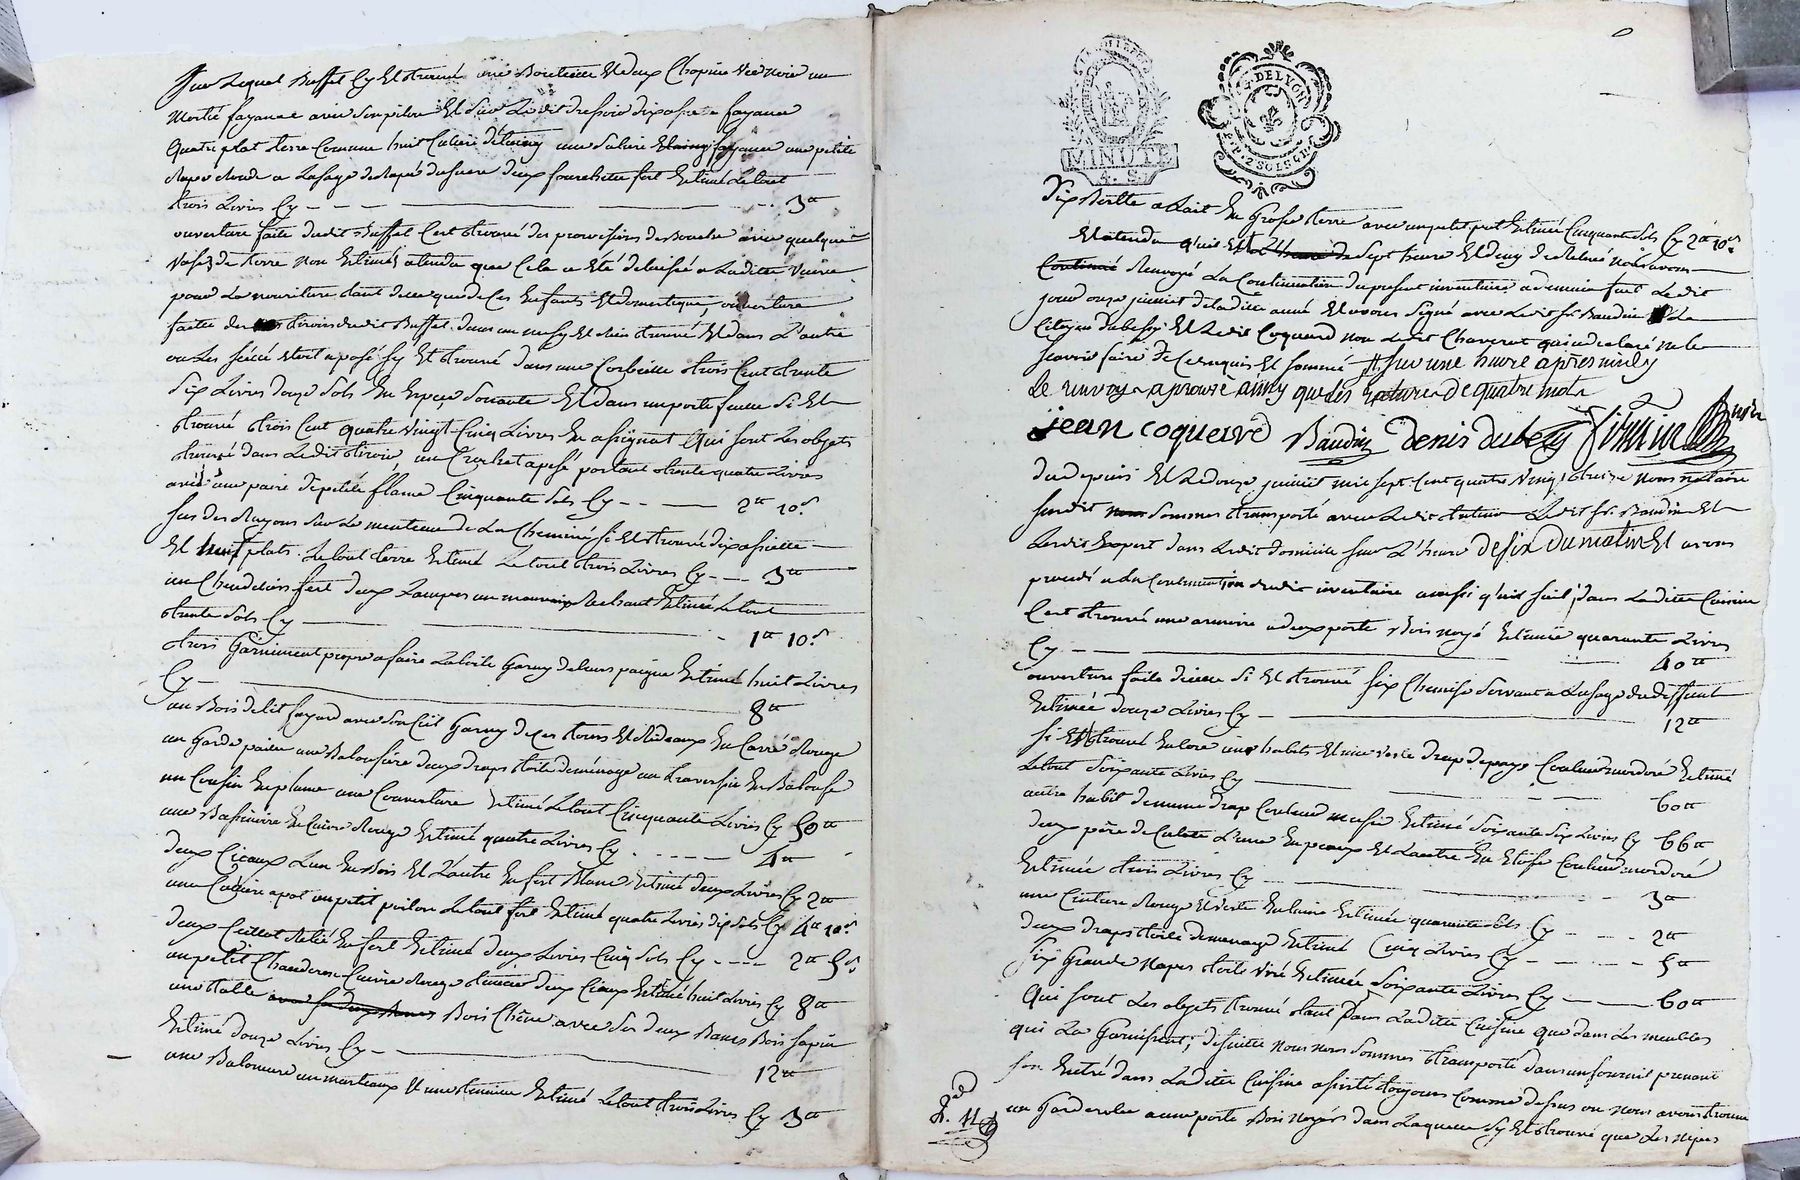 Sur Lequel Buffet Cy Est trouvé une Bouteille Et deux Chopine Vere noir un
Mortié fayance avec son pilon Et sur Le dit dressoir dix assiete fayance
Quatre plat terre Comune huit Culiere d'étaing une Saliere Etaing fayance une petite
a Lusage de deux fourchette fert Estimé Letout
trois Livres Cy - - - 3 ₶
ouverture faite dudit Buffet Cest trouvé des provisions de Bouche avec quelque
Vases de terre non Estimés atendu que Cela a été delaissé a Ladite Veuve
pour La nouriture tant delle que de Ces Enfants Et domestique, ouverture
faitte des tiroirs dudit Buffet dans un ne sy Est rien trouvé Et dans L'autre
ou Les scéele Etoit aposé sy Est trouvé dans une Corbeille trois Cent trente
Six Livres douze Sols En Espece Sonante Et dans un porte feuille Si Est
trouvé trois Cent quatre Vingt Cinq Livres En assignat Qui sont Les objets
trouvé dans Ledit tiroir, un Crochet a pesé portant trente quatre Livres
avec une paire de petite flame Cinquante Sols Cy - - 2 ₶ 10 s
sur des Rayons sur Le menteau de La Cheminé si Est trouvé dix assiette
Et huit plats Letout terre Estimé Letout trois Livres Cy - - 3 ₶
un Chandelier fert deux Lampes un mauvais Rechaut Estimé Letout
trente Sols Cy 1 ₶ 10 s
trois Garniment propre a faire La toile Garny de leurs paigne Estimé huit Livres
Cy 8 ₶
un Bois de lit fayard avec son Ciel Garny de Ces tours Et Rideaux En Carré Rouge
un Garde paille une Balouffiere deux draps toile deménage un traversin En Balouffe
un Cousin En plume une Couverture Estimé Letout Cinquante Livres Cy 50 ₶
une Bassinoire En Cuivre Rouge Estimé quatre Livres Cy - - - 4 ₶
deux Cicaux Lun En Bois Et L'autre En fert Blanc Estimé deux Livres Cy 2 ₶
une Culiere a pot un petit poilon Letout fert Estimé quatre Livres dix Sols Cy 4 ₶ 10 s
deux Cuillot Relié En fert Estimé deux Livres Cinq Sols Cy - - - 2 ₶ 5 s
un petit Chauderon Cuivre Rouge tenant deux Cicaux Estimé huit Livres Cy 8 ₶
une table Bois Chêne avec Ses deux Bancs Bois Sapin
Estimé douze Livres Cy - 12 ₶
une un marteaux Et une tenaille Estimé Letout trois Livres Cy 3 ₶
MINUTE
4. S.
G. DE LYON
P.P. 2 SOLS 4 D.
Six a Lait En Grosse terre avec un petit pot Estimé Cinquante Sols Cy 2 ₶ 10 s
Et atendu qu'il Est L'heure de Sept heure Et demy de Relevé nous avons
Continué Renvoyé La Continuation du present inventaire a demain fait Ledit
jour onze juillet de ladite anné Et avons Signé avec Ledit sr. Baudin La
Citoyen Dubessy Et Ledit Coquard non Ledit Charvret qui a declaré ne le
Scavoir faire de Ce Enquis Et Sommé # Sur une heure après midy
Le renvoy approuvé ainsy que les rature de quatre mots
jean coquerd Baudin denis dubessy
du depuis Et Le douze juillet mil sept Cent quatre Vingt treize nous notaire
susdit nous Sommes transporté avec Ledit tuteur Ledit Sr. Baudin Et
Lesdit Expert dans Ledit domicile sur L'heure de six du matin Et avons
procedé a La Continuation dudit inventaire ainsi qu'il suit, dans Ladite Cuisine
Cest trouvé une armoire a deux porte Bois noyé Estimée quarante Livres
Cy - - 40 ₶
ouverture faite dicelle Si Est trouvé six Chemise Servant a Lusage du deffunt
Estimée douze Livres Cy - 12 ₶
Si Est trouvé Encore un habit Et une Veste drap de pays Couleur mordoré Estimé
Letout Soixante Livres Cy 60 ₶
autre habit de meme drap Couleur Estimé Soixante Six Livres Cy 66 ₶
deux pére de Culote L'une En peaux Et Lautre En Etoffe Couleur mordoré
Estimée trois Livres Cy 3 ₶
une Ceinture Rouge Et Verte En laine Estimée quarante Sols Cy - - - 2 ₶
deux draps toile de menage Estimé Cinq Livres Cy - - - 5 ₶
Six Grande Napes toile Estimée Soixante Livres Cy 60 ₶
Qui sont Les objets trouvé tant dans Ladite Cuisine que dans Les meubles
qui La Garnissent; desuitte nous nous Sommes transporté dans un fournil prenant
son Entré dans Ladite Cuisine assisté toujours Comme dessus ou nous avons trouvé
un Garderobe a une porte Bois Noyer dans Laquelle Sy Est trouvé que Les nipes